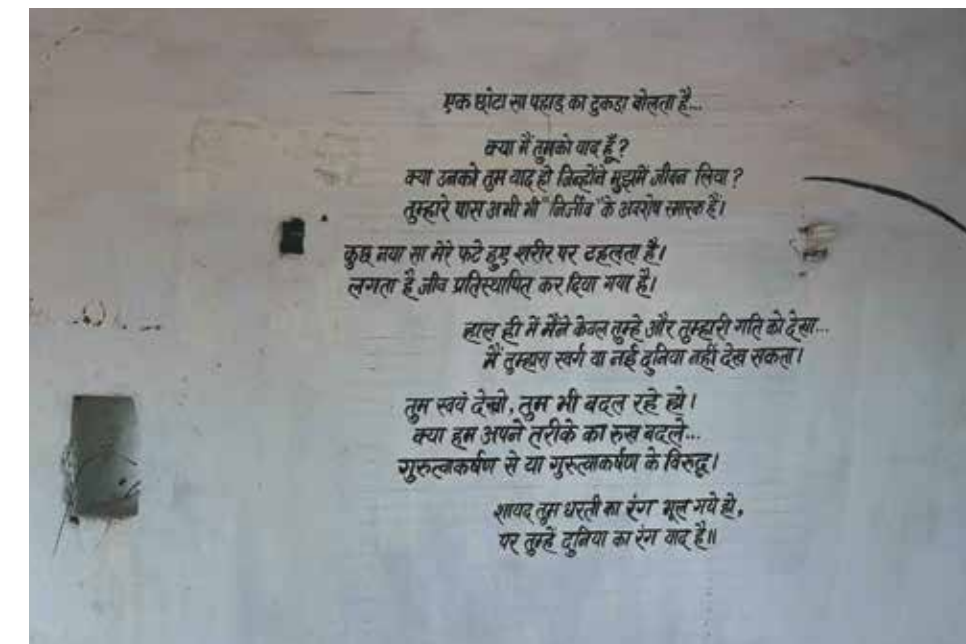 एक छोटा सा पहाड़ का टुकडा बोलता है...
क्या मैं तुमको याद हूँ?
क्या उनको तुम याद हो जिन्होंने मुझमें जीवन लिया?
तुम्हारे पास अभी भी "निर्जीव" के अवशेष स्मारक हैं।
कुछ नया सा मेरे फटे हुए शरीर पर टहलता है।
लगता है जीव प्रतिस्थापित कर दिया गया है।
हाल ही में मैंने केवल तुम्हे और तुम्हारी गति को देखा...
मैं तुम्हारा स्वर्ग या नई दुनिया नहीं देख सकता।
तुम स्वयं देखो, तुम भी बदल रहे हो।
क्या हम अपने तरीके का रुख बदले...
गुरुत्वाकर्षण से या गुरुत्वाकर्षण के विरुद्ध।
शायद तुम धरती का रंग भूल गये हो,
पर तुम्हे दुनिया का रंग याद है॥